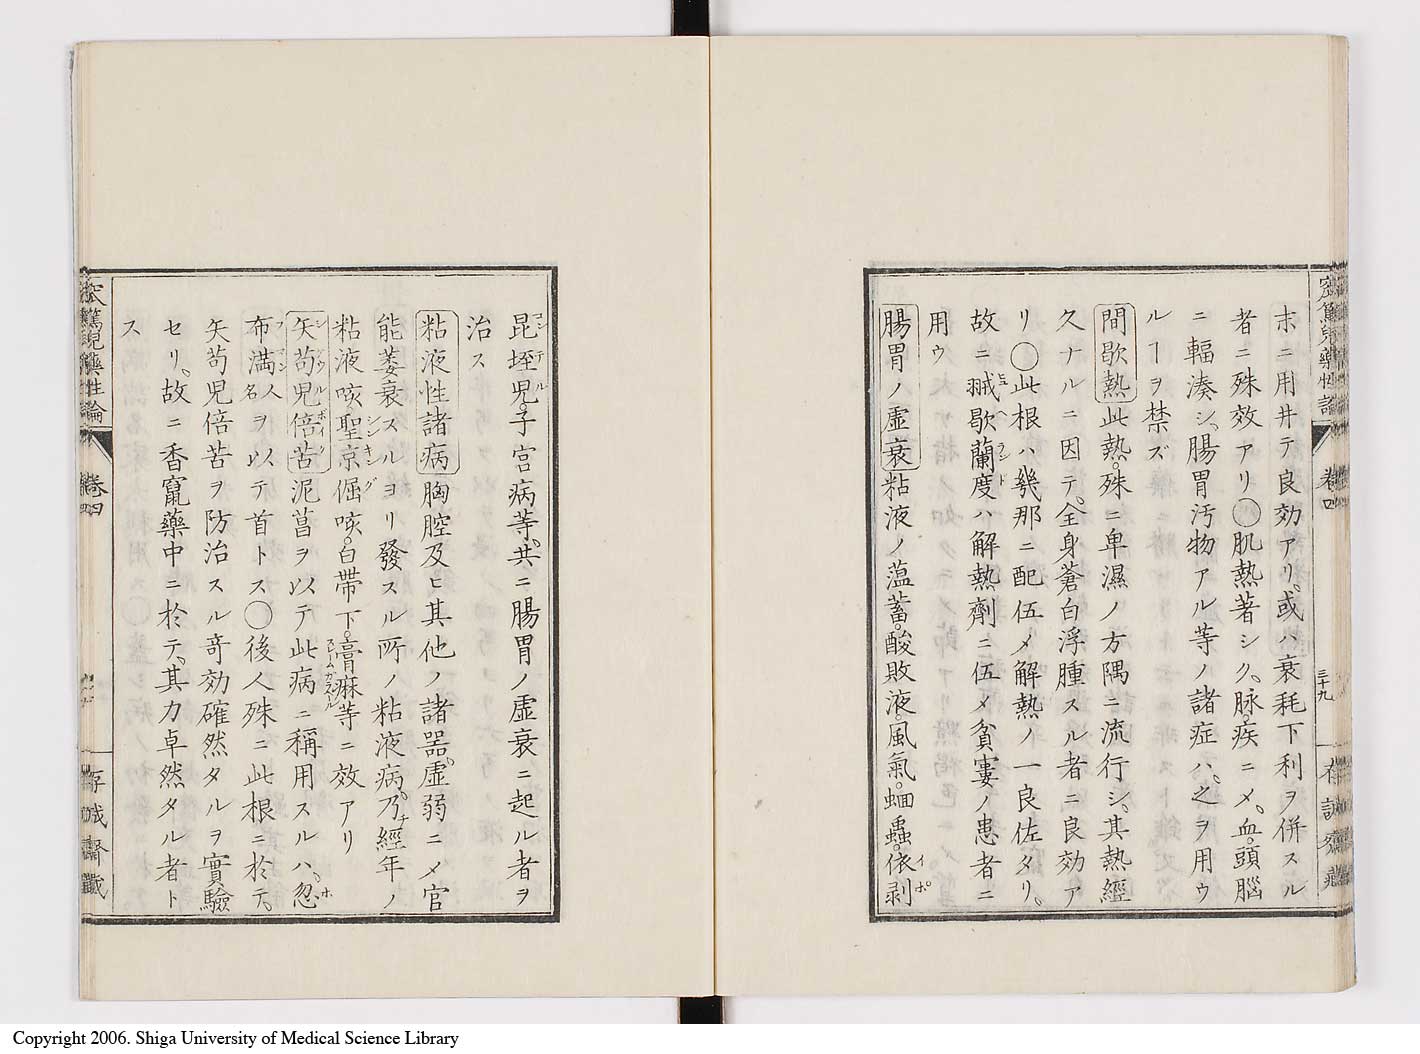 末ニ用井テ良効アリ。或ハ衰耗下利ヲ併スル
者ニ殊效アリ〇肌熱著シク。脉。疾ニメ。血。頭腦
ニ輻湊シ。腸胃汚物アル等ノ諸症ハ。之ヲ用ウ
ルヿヲ禁ズ
間歇熱此熱。殊ニ卑濕ノ方隅ニ流行シ。其熱經
久ナルニ因テ。全身蒼白浮腫スル者ニ良効ア
リ〇此根ハ幾那ニ配伍メ解熱ノ一良佐タリ。
故ニ歇蘭度ハ解熱劑ニ伍メ貧寠ノ患者ニ
用ウ
腸胃ノ虚衰粘液ノ薀蓄。酸敗液。風氣。蛔蟲。依剥
窊篤兒藥性論
卷四
三十九
存誠齋藏
昆垤児。子宮病等。共ニ腸胃ノ虚衰ニ起ル者ヲ
治ス
粘液性諸病胸腔及ヒ其他ノ諸器。虚弱ニメ官
能萎衰スルヨリ發スル所ノ粘液病。乃經年ノ
粘液咳。聖京倔咳。白帯下。膏痳等ニ效アリ
矢苟児倍苦泥菖ヲ以テ此病ニ稱用スルハ。忽
布満人名ヲ以テ首トス〇後人殊ニ此根ニ於テ。
矢苟児倍苦ヲ防治スル竒効確然タルヲ實驗
セリ。故ニ香竄藥中ニ於テ。其力卓然タル者ト
ス
窊篤児藥性論
卷四
存誠齋藏
Copyright 2006. Shiga University of Medical Science Library